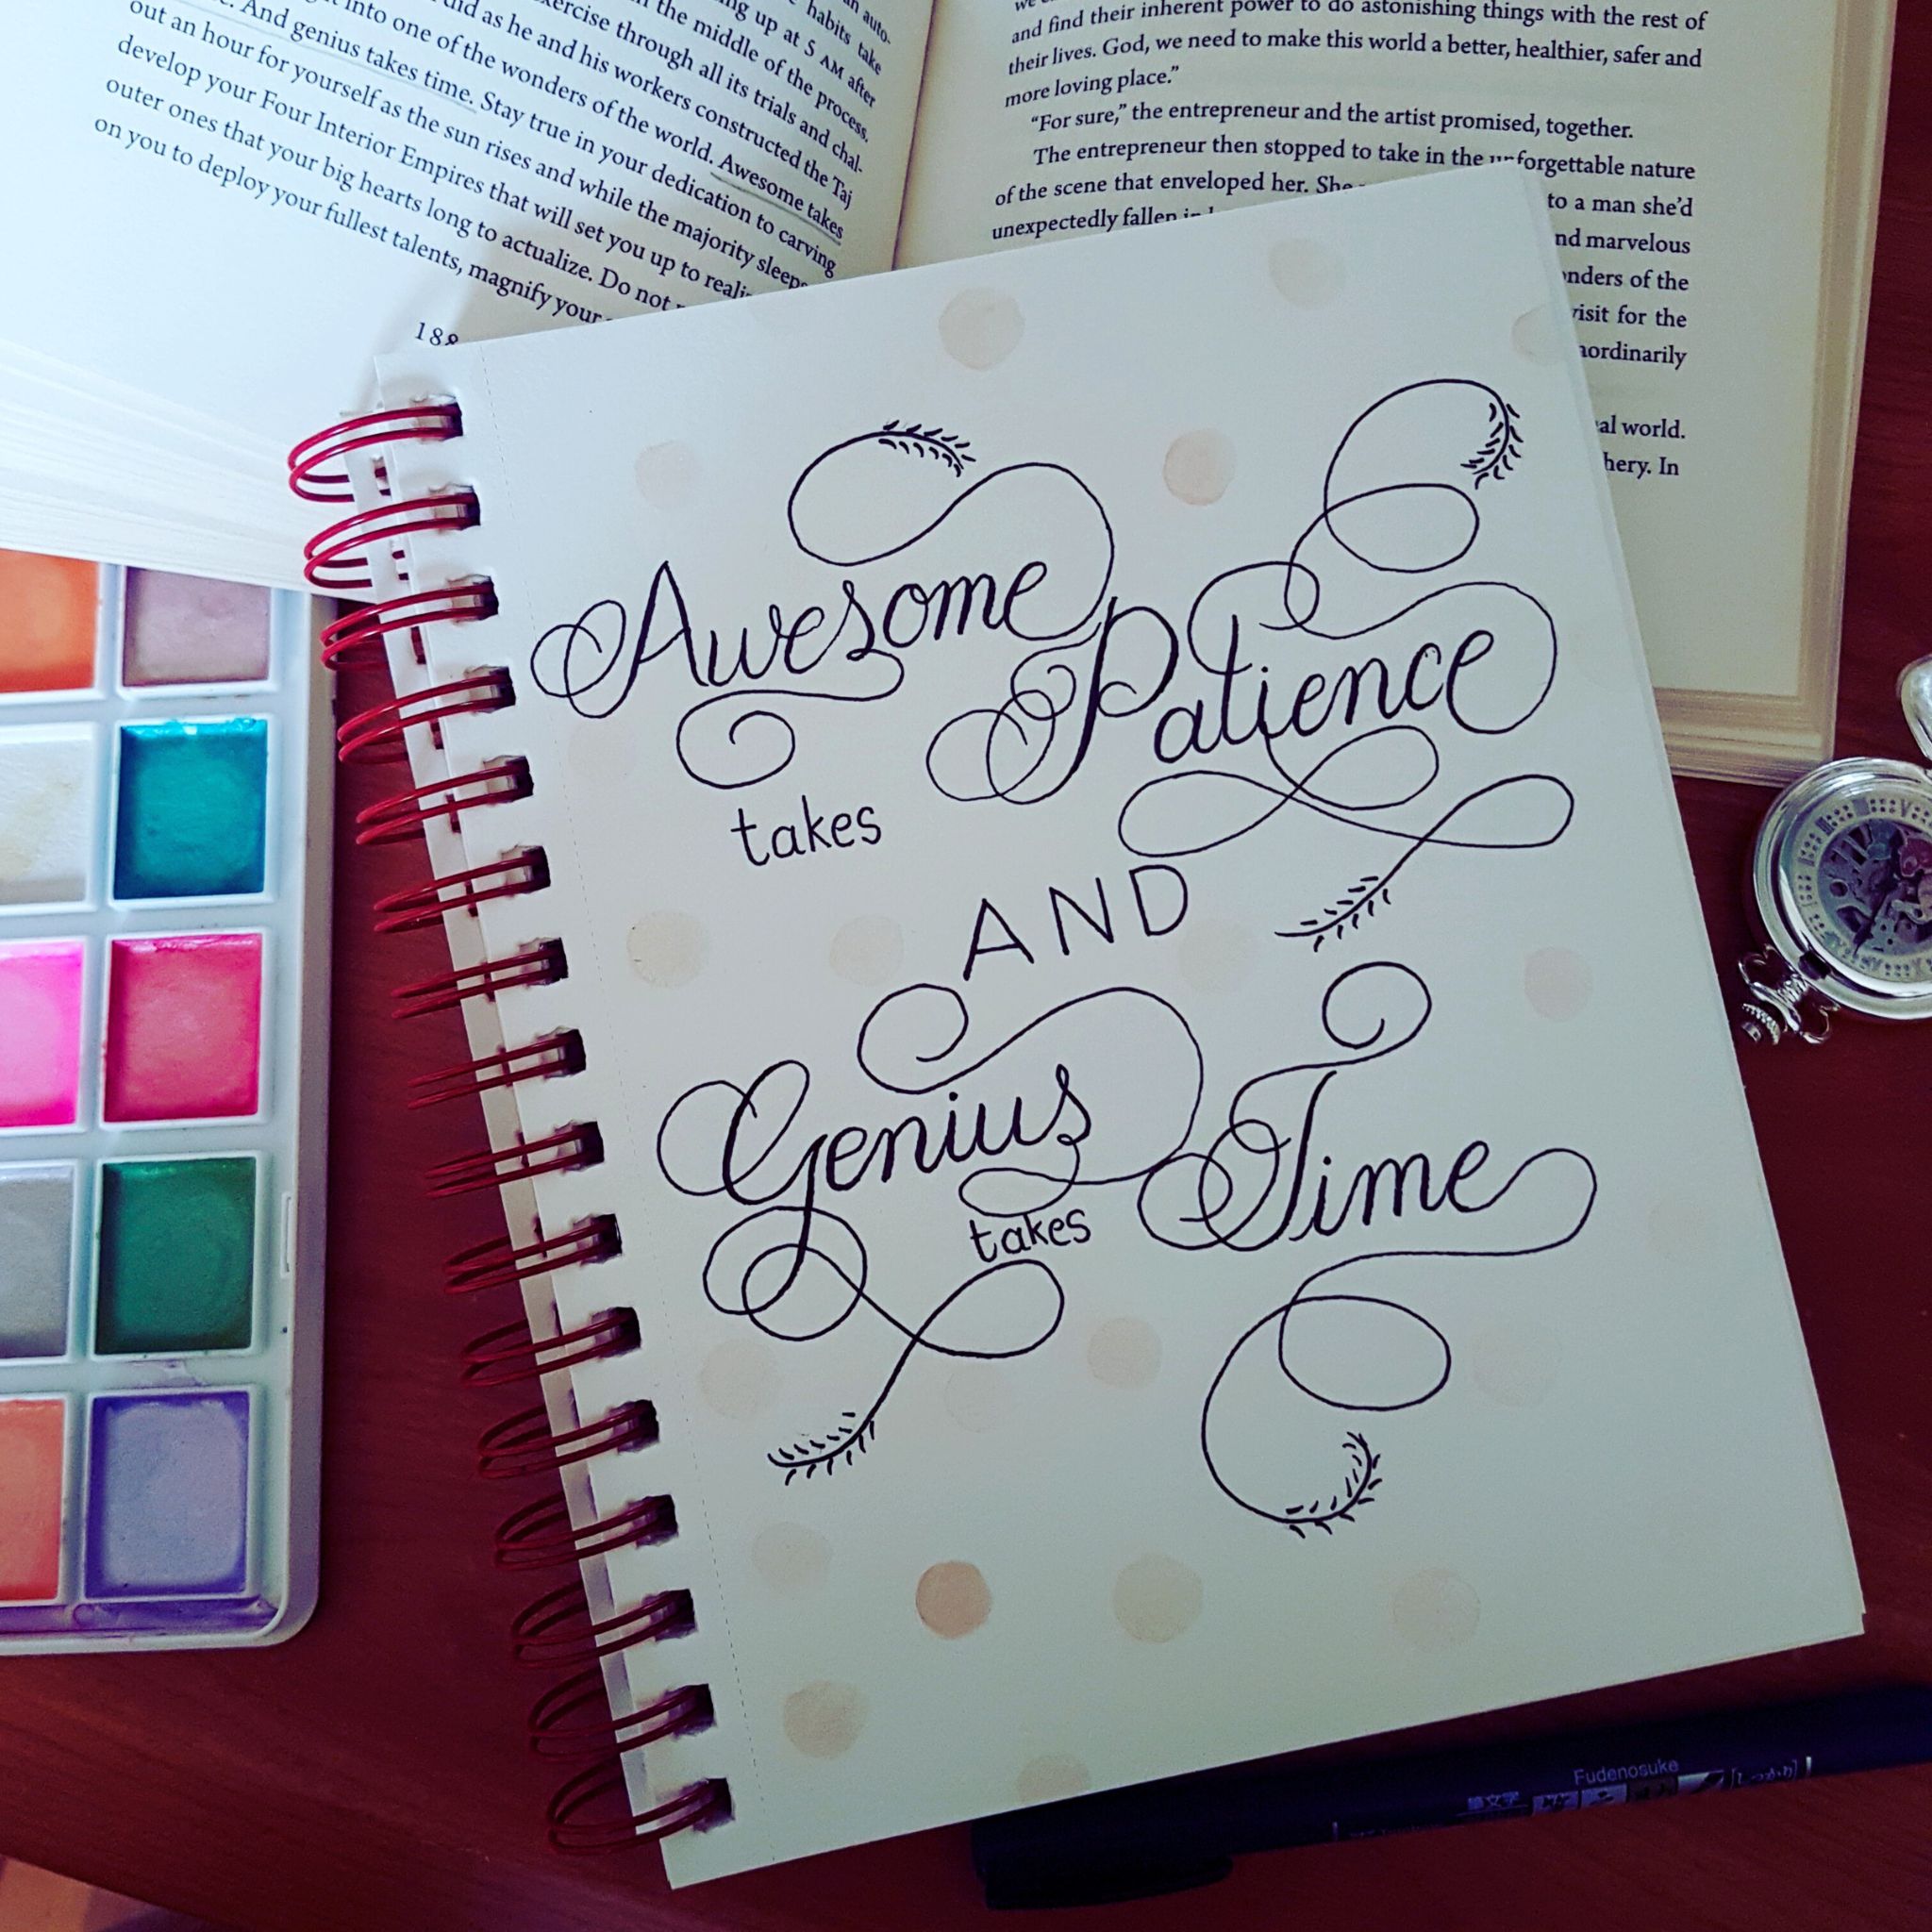 an auto-
habits take
ng up at 5 AM after
n the middle of the process.
xercise through all its trials and chal-
did as he and his workers constructed the Taj
into one of the wonders of the world. Awesome takes
And genius takes time. Stay true in your dedication to carving
out an hour for yourself as the sun rises and while the majority sleeps
develop your Four Interior Empires that will set you up to reali
outer ones that your big hearts long to actualize. Do not
on you to deploy your fullest talents, magnify your
188
we
and find their inherent power to do astonishing things with the rest of
their lives. God, we need to make this world a better, healthier, safer and
more loving place.”
“For sure,” the entrepreneur and the artist promised, together.
The entrepreneur then stopped to take in the unforgettable nature
of the scene that enveloped her. She to a man she’d
unexpectedly fallen in nd marvelous
onders of the
visit for the
aordinarily
al world.
hery. In
Awesome
takes
Patience
AND
Genius
takes
Time
Fudenosuke